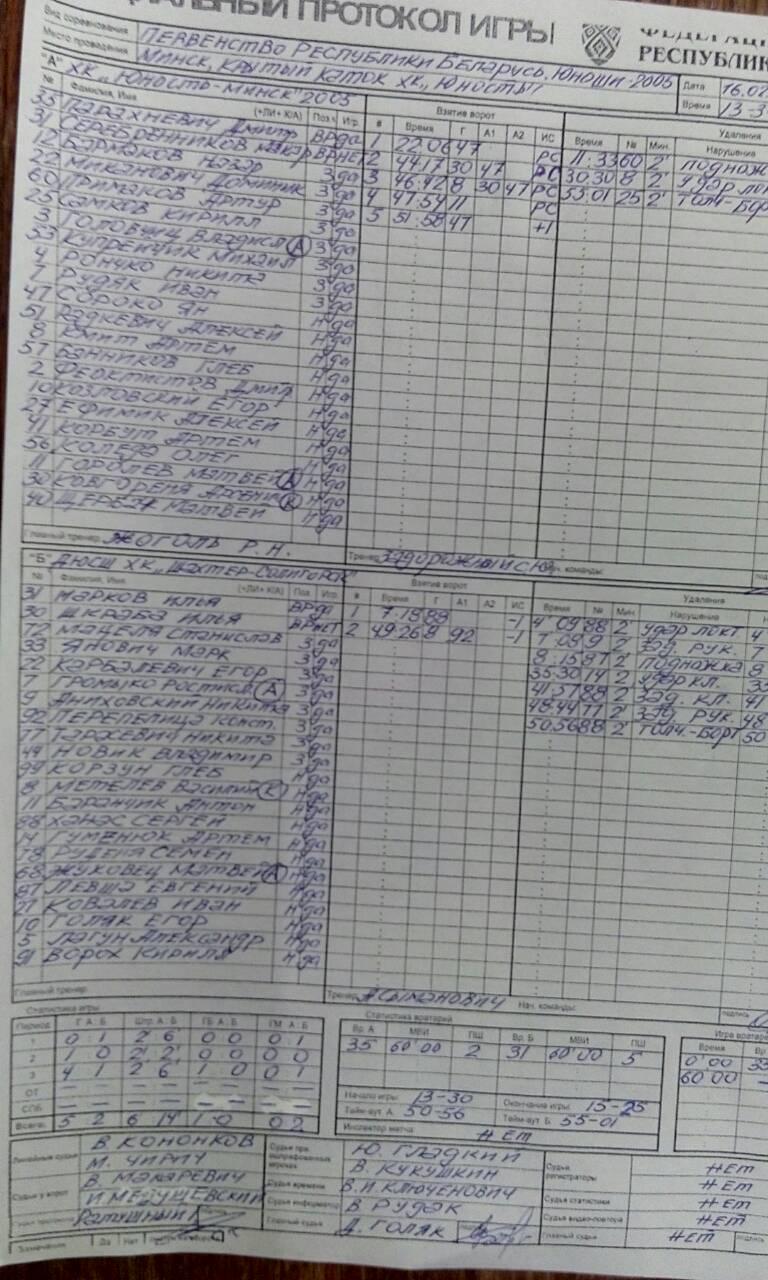 АЛЬНЫЙ ПРОТОКОЛ ИГРЫ
ФЕДЕРАЦИ
РЕСПУБЛИК
Вид соревнования ПЕРВЕНСТВО РЕСПУБЛИКИ БЕЛАРУСЬ, ЮНОШИ-2005 Дата 16.02
Место проведения МИНСК, КРЫТЫЙ КАТОК ХК „ЮНОСТЬ" Время 13-3
"А" ХК „ЮНОСТЬ-МИНСК" 2005 Взятие ворот Удаления
№ Фамилия, Имя (+ЛИ+ К/А) Поз. Игр. # Время Г А1 А2 ИС Время № Мин. Нарушения
35 ПАРАХНЕВИЧ Дмитр ВР да 1 22.06 47 11.33 60 2' поднож
31 СЕРЕБРЕННИКОВ ВР НЕТ 2 44.17 30 47 РС 30.30 8 2' удар лок
НАЗАР З да 3 46.42 8 30 47 РС 53.01 25 2' ТОЛЧ-БОР
МИКАНОВИЧ Доминик З да 4 47.54 11 РС
60 ПРИМАКОВ АРТУР З да 5 51.58 47 +1
25 САМКОВ КИРИЛЛ З да
3 А З да
КУПРЕЙЧИК МИХАИЛ З да
4 НИКИТА З да
7 РУДЯК ИВАН З да
47 СОРОКО ЯН Н да
51 РАДКЕВИЧ АЛЕКСЕЙ Н да
8 АРТЕМ Н да
57 БАННИКОВ ГЛЕБ Н да
2 ФЕОКТИСТОВ Дмит Н да
10 КОЗЛОВСКИЙ ЕГОР Н да
27 ЕФИМИК АЛЕКСЕЙ Н да
41 КОРБУТ АРТЕМ Н да
56 КОЛЕДА ОЛЕГ Н да
11 ГОРОЛЕВ МАТВЕЙ А Н да
30 КОВГОРЕНЯ АРСЕНИ К Н да
40 МАТВЕЙ Н да
Главный тренер ЖОГОЛЬ Р.Н. Тренер ЗАДОРОЖНЫЙ С.Ю Нач. команды:
"Б" ДЮСШ ХК „ШАХТЕР-СОЛИГОРСК" Взятие ворот Удаления
№ Фамилия, Имя (+ЛИ+ К/А) Поз. Игр. # Время Г А1 А2 ИС Время № Мин. Нарушения
31 МАРКОВ ИЛЬЯ ВР да 1 7.19 88 -1 4.09 88 2' удар локт 4
30 ШКРАБА ИЛЬЯ ВР НЕТ 2 49.26 8 92 -1 7.09 9 2' ЗАД. РУК. 7
72 МАЦЕЛЯ СТАНИСЛАВ З да 8.15 87 2' ПОДНОЖКА 8
33 ЯНОВИЧ МАРК З да 35.30 14 2' УДАР КЛ. 35
22 КАРБАЛЕВИЧ ЕГОР З да 41.57 88 2' ЗАД. КЛ. 41
7 ГРОМЫКО РОСТИСЛ А З да 48.44 77 2' ЗАД. РУК. 48
9 АНИХОВСКИЙ НИКИТА З да 50.56 88 2' ТОЛЧ.-БОРТ 50
92 ПЕРЕПЕЛИЦА КОНСТ. З да
77 ТАРАСЕВИЧ НИКИТА З да
49 НОВИК ВЛАДИМИР З да
99 КОРЗУН ГЛЕБ Н да
8 МЕТЕЛЕВ ВАСИЛИЙ К Н да
11 БАРАНЧИК АНТОН Н да
88 ХАНАС СЕРГЕЙ Н да
14 ГУМЕНЮК АРТЕМ Н да
78 РУДЕНЯ СЕМЕН Н да
68 ЖУКОВЕЦ МАТВЕЙ А Н да
87 ЛЕВША ЕВГЕНИЙ Н да
21 КОВАЛЕВ ИВАН Н да
10 ГОЛЯК ЕГОР Н да
5 ЛАГУН АЛЕКСАНДР Н да
91 ВОРОХ КИРИЛЛ Н да
Главный тренер: Тренер АСЫМАНОВИЧ Нач. команды: подпись
Статистика игры Статистика вратарей
Период Г А:Б Штр А:Б ГБ А:Б ГМ А:Б Вр. А МВИ ПШ Вр. Б МВИ ПШ Игра вратаре
1 0 1 2' 6' 0 0 0 1 35 60'00 2 31 60'00 5 Время
2 1 0 2' 2' 0 0 0 0 0'00 35
3 4 1 2' 6' 1 0 0 1 60'00
ОТ — — — — — — — —
СПБ — — — — — — — — Начало игры: 13-30 Окончание игры: 15-25
Всего: 5 2 6 14' 1 0 0 2 Тайм-аут А: 50-56 Тайм-аут Б: 55-01
Инспектор матча: НЕТ
Линейные судьи В КОНОНКОВ Судьи при оштрафованных игроках Ю. ГЛАДКИЙ Судьи регистраторы НЕТ
М. ЧИРИЧ В. КУКУШКИН НЕТ
Судьи у ворот В. МАКАРЕВИЧ Судья времени В.И КЛЮЧЕНОВИЧ Судья статистики НЕТ
И МЕДУШЕВСКИЙ Судья информатор В РУДАК Судья видео-повтора НЕТ
Ратушный Главный судья Д. ГОЛЯК Главный судья НЕТ
Замечания Да Нет